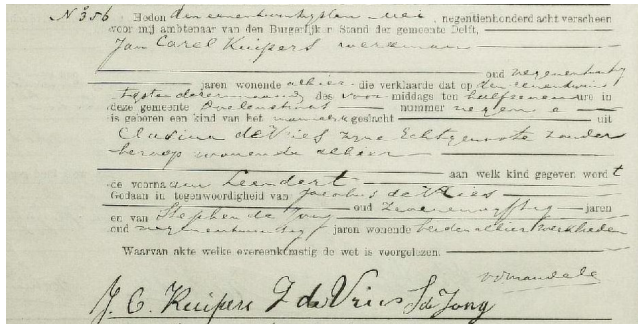 No 356 Heden den eenentwintigsten Mei, negentienhonderd acht verscheen
voor mij ambtenaar van den Burgerlijken Stand der gemeente Delft,
Jan Carel Kuipers werkman
oud negenentwintig
jaren wonende alhier die verklaarde dat op den eenentwin
tigsten dezer maand des voor middags ten half uure in
deze gemeente Doelenstraat nummer
is geboren een kind van het mannelijk geslacht uit
Clasina de Vries zijne Echtgenoote zonder
beroep wonende alhier
aan welk kind gegeven wordt
de voornaam Leendert
Gedaan in tegenwoordigheid van Jacobus de Vries
oud zevenenvijftig jaren
en van Stephen de Jong
oud negenentwintig jaren wonende beiden alhier werklieden
Waarvan akte welke overeenkomstig de wet is voorgelezen.
J. C. Kuipers J de Vries S de Jong